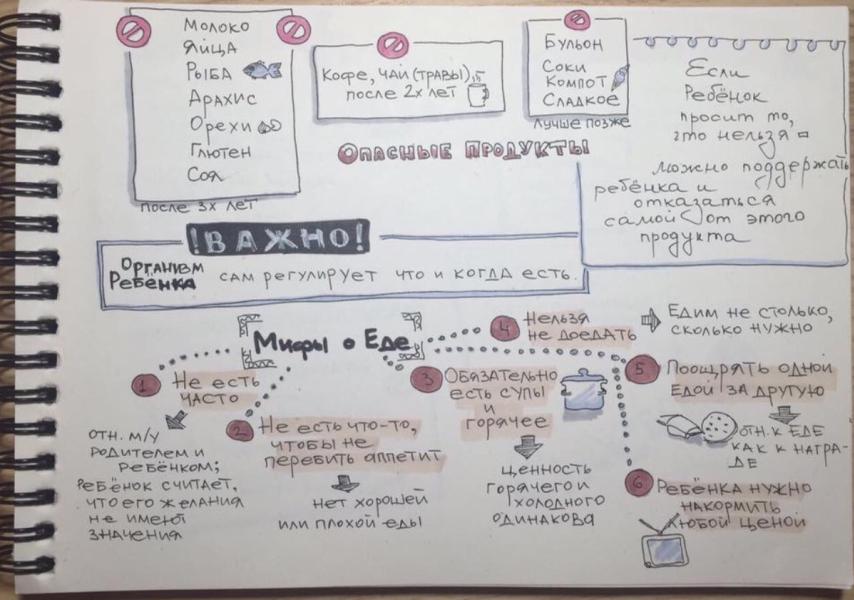 Молоко
Яйца
Рыба
Арахис
Орехи
Глютен
Соя
после 3х лет
Кофе, чай (травы)
после 2х лет
Бульон
Соки
Компот
Сладкое
лучше позже
Опасные продукты
Если
Ребёнок
просит то,
что нельзя
можно поддержать
ребёнка и
отказаться
самой от этого
продукта
!ВАЖНО!
Организм
Ребёнка сам регулирует что и когда есть.
Мифы о Еде
1 Не есть
часто
отн. м/у
родителем и
ребёнком;
Ребёнок считает,
что его желания
не имеют
значения
2 Не есть что-то,
чтобы не
перебить аппетит
нет хорошей
или плохой еды
3 Обязательно
есть супы
и
горячее
ценность
горячего и
холодного
одинакова
4 Нельзя
не доедать
Едим не столько,
сколько нужно
5 Поощрять одной
едой за другую
отн. к еде
как к награ-
де
6 Ребёнка нужно
накормить
любой ценой